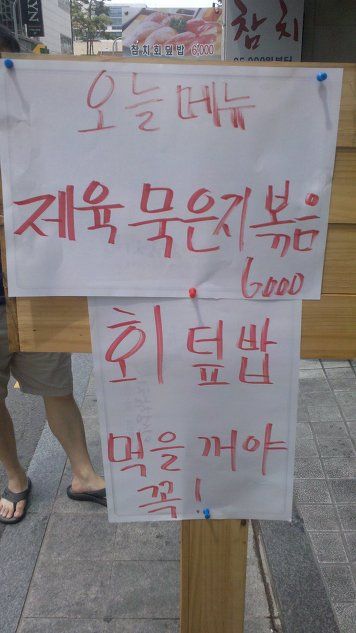 참치회덮밥 6,000
참치
오늘 메뉴
제육 묵은지 볶음
6000
회덮밥
먹을꺼야
꼭!